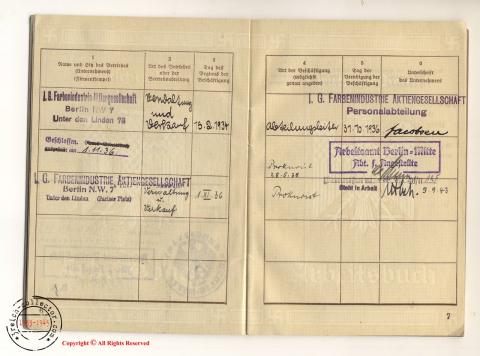 1
Name und Sitz des Betriebes
(Unternehmens)
(Firmenstempel)
2
Art des Betriebes
oder der
Betriebsabteilung
3
Tag des
Beginns der
Beschäftigung
I. G. Farbenindustrie Aktiengesellschaft
Berlin NW 7
Unter den Linden 78
Verwaltung
und
Verkauf
15.2.1934
Geschlossen.
am 1.11.36
I. G. FARBENINDUSTRIE AKTIENGESELLSCHAFT
Berlin N.W. 7
Unter den Linden (Pariser Platz)
Verwaltung
u.
Verkauf
1. XI. 36
4
Art der Beschäftigung
(möglichst
genau angeben)
5
Tag der
Beendigung der
Beschäftigung
6
Unterschrift
des Unternehmers
I. G. FARBENINDUSTRIE AKTIENGESELLSCHAFT
Personalabteilung
Abteilungsleiter
31.10.1936
Jacobsen
Arbeitsamt Berlin-Mitte
Abt. f. Angestellte
Prokurist
Steht in Arbeit
9.9.43
Prokurist
Arbeitsbuch
7
3reich-collector.com
1933-1945
Copyright © All Rights Reserved